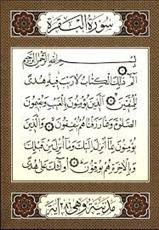 سورة البقرة
بسم الله الرحمن الرحيم
الم ذلك الكتاب لا ريب فيه هدى
للمتقين الذين يؤمنون بالغيب ويقيمون
الصلوة ومما رزقناهم ينفقون والذين
يؤمنون بما أنزل إليك وما أنزل من قبلك
وبالآخرة هم يوقنون أولئك على هدى
مدنية وهي